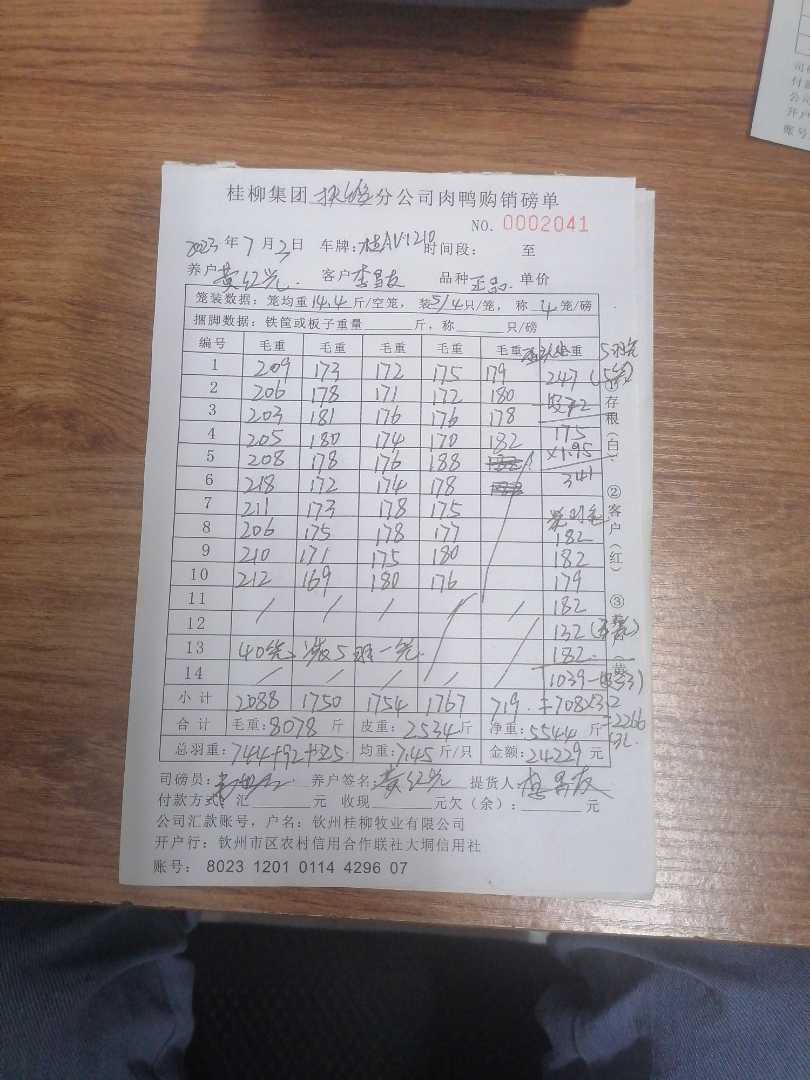 桂柳集团 分公司肉鸭购销磅单
NO. 0002041
2023年7月2日 车牌:桂AV1210 时间段: 至
养户 黄红光 客户 李昌友 品种 正品 单价
笼装数据:笼均重14.4斤/空笼, 装5/4只/笼, 称 4笼/磅
捆脚数据:铁筐或板子重量 斤,称 只/磅
编号 毛重 毛重 毛重 毛重 毛重 重
1 209 173 172 175 179 247
2 206 178 171 172 180
3 203 181 176 176 178 175
4 205 180 174 170 182 ×1.95
5 208 178 176 188 341
6 218 172 174 178
7 211 173 178 175
8 206 175 178 177 182
9 210 171 175 180 182
10 212 169 180 176 179
11 / / / / / 182
12 132
13 40笼 5 一笼 182
14 / / / / / 1039
小计 2088 1750 1754 1767 719 =708×3.2
=2266
合计 毛重:8078斤 皮重:2534斤 净重:5544斤
总羽重:744+92+ 均重:7.45斤/只 金额:24229元
司磅员: 养户签名:黄红光 提货人: 昌友
付款方式:汇 元 收现 元欠(余): 元
公司汇款账号,户名:钦州桂柳牧业有限公司
开户行:钦州市区农村信用合作联社大垌信用社
账号: 8023 1201 0114 4296 07
①存根(白)
②客户(红)
③ 黄
司
付款
公司
开户
账号